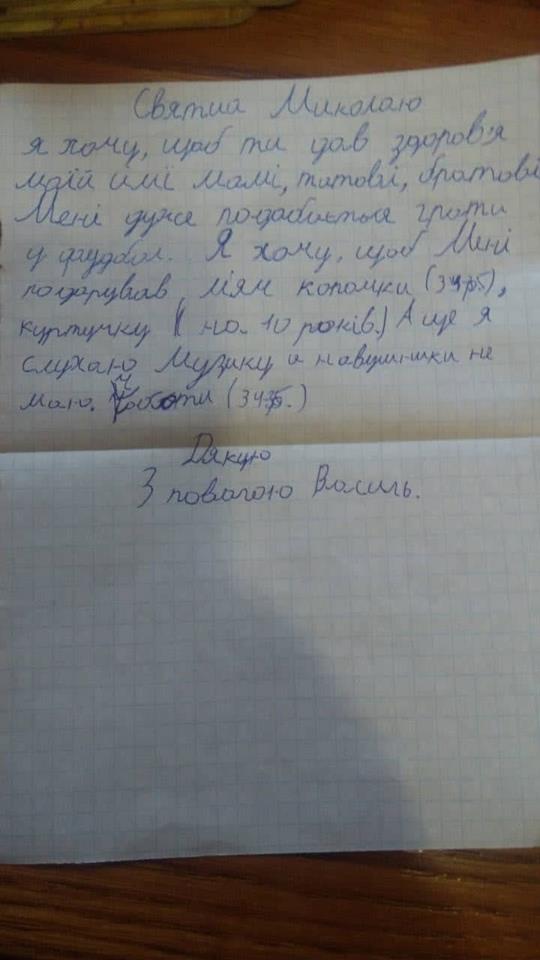 Святиа Миколаю
я хочу, щоб ти дав здоров'я
моїй імї мамі, татові, братові
Мені дуже подобається грати
у фудбол. Я хочу, щоб Мені
подарував м'яч копочки (34р.),
курточку (на 10 років.) А ще я
слухаю Музику и навушники не
маю. Чоботи (34р.)
Дякую
З повагою Василь.